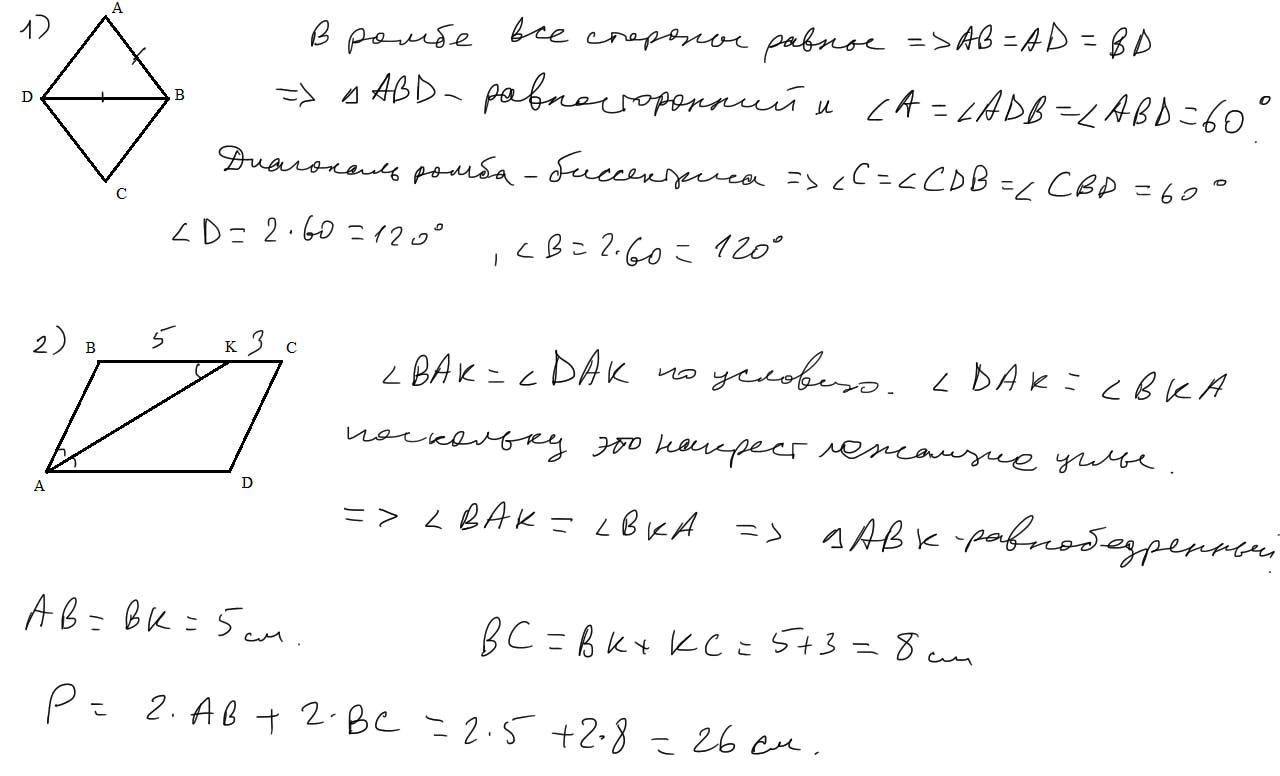 1)
A
D
B
C
В ромбе все стороны равные => AB = AD = BD
=> △ABD - равносторонний и ∠A = ∠ADB = ∠ABD = 60°.
Диагональ ромба - биссектриса => ∠C = ∠CDB = ∠CBD = 60°
∠D = 2·60 = 120°, ∠B = 2·60 = 120°
2)
5
3
B
K
C
A
D
∠BAK = ∠DAK по условию. ∠DAK = ∠BKA
поскольку это накрест лежащие углы.
=> ∠BAK = ∠BKA => △ABK - равнобедренный.
AB = BK = 5 см.
BC = BK + KC = 5+3 = 8 см
P = 2·AB + 2·BC = 2·5 + 2·8 = 26 см.